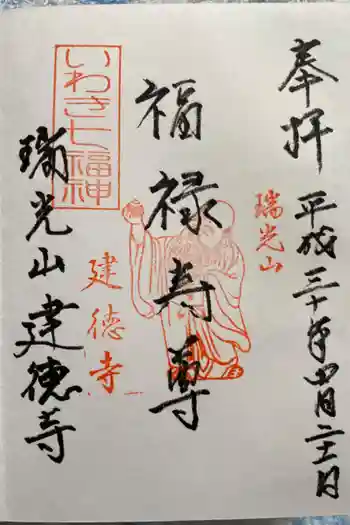 奉拝 平成三十年四月二十一日
瑞光山
福禄寿尊
いわき七福神
建徳寺
瑞光山 建徳寺